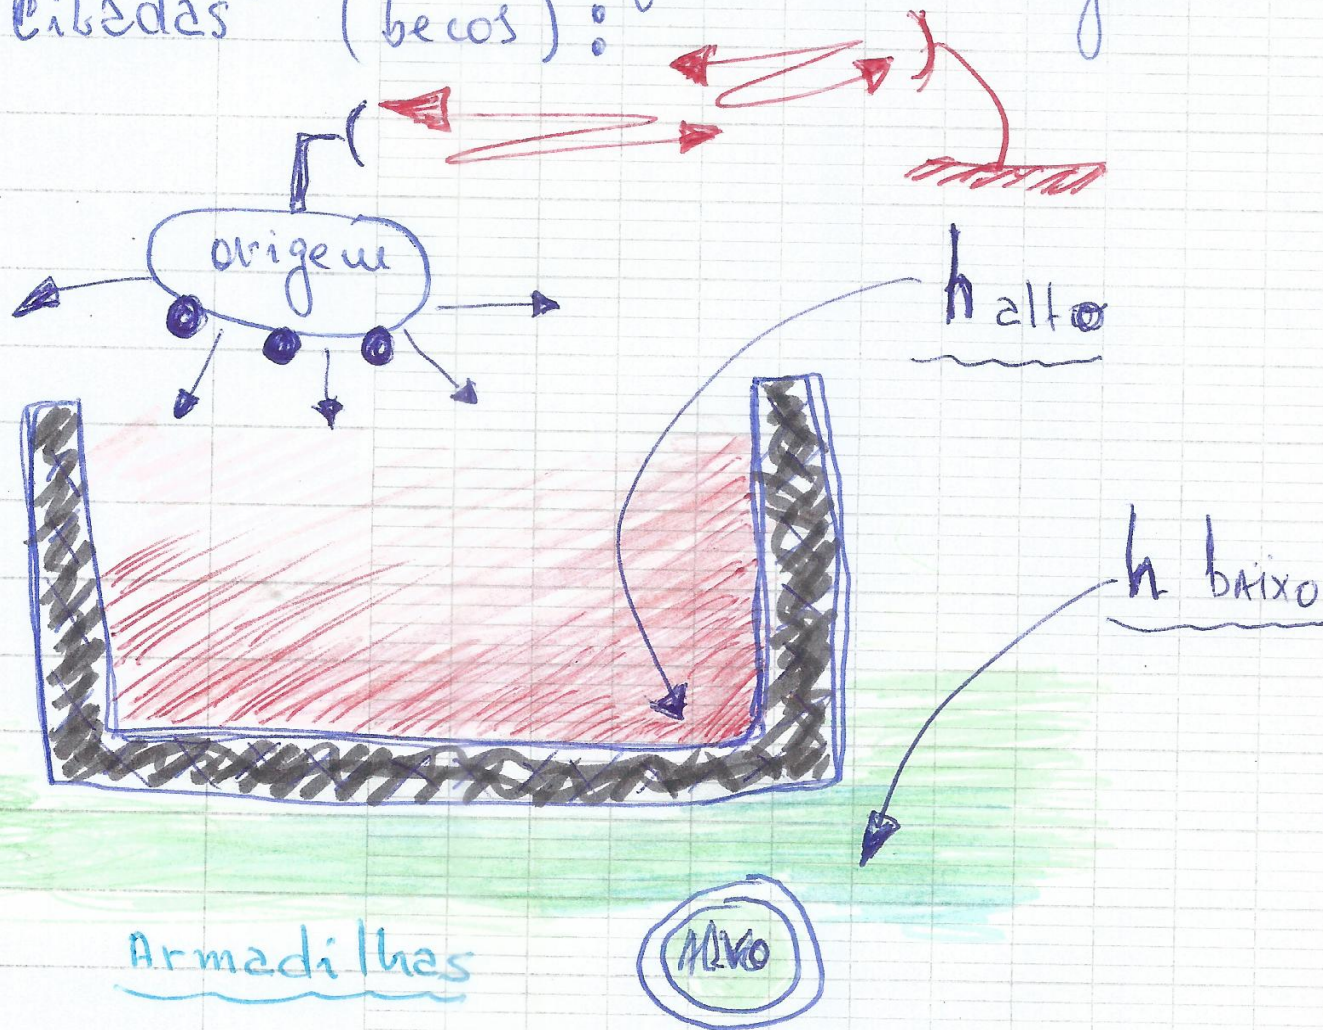 Ciladas (becos):
origem
h alto
h baixo
Armadilhas
ALVO